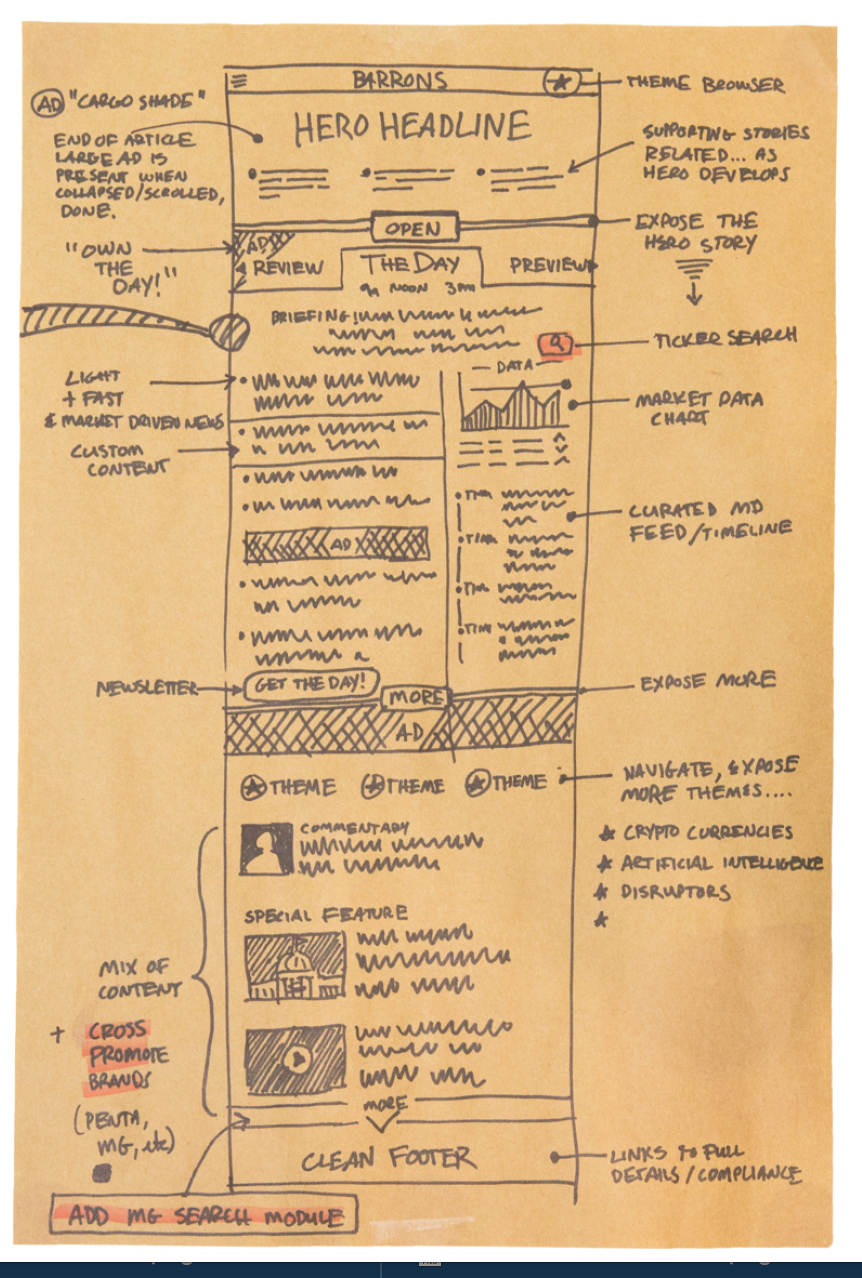 BARRONS
THEME BROWSER
AD "CARGO SHADE"
HERO HEADLINE
END OF ARTICLE
LARGE AD IS
PRESENT WHEN
COLLAPSED/SCROLLED,
DONE.
SUPPORTING STORIES
RELATED... AS
HERO DEVELOPS
OPEN
EXPOSE THE
HERO STORY
"OWN
THE
DAY!"
AD
REVIEW
THE DAY
PREVIEW
9A NOON 3PM
BRIEFING!
TICKER SEARCH
DATA
LIGHT
+ FAST
& MARKET DRIVEN NEWS
CUSTOM
CONTENT
MARKET DATA
CHART
TIME
TIME
TIME
TIME
CURATED MD
FEED/TIMELINE
AD
NEWSLETTER
GET THE DAY!
MORE
EXPOSE MORE
AD
THEME THEME THEME
NAVIGATE, & EXPOSE
MORE THEMES....
CRYPTO CURRENCIES
ARTIFICIAL INTELLIGENCE
DISRUPTORS
COMMENTARY
SPECIAL FEATURE
MIX OF
CONTENT
+ CROSS
PROMOTE
BRANDS
(PENTA,
MG, etc)
MORE
CLEAN FOOTER
LINKS TO FULL
DETAILS/COMPLIANCE
ADD MG SEARCH MODULE